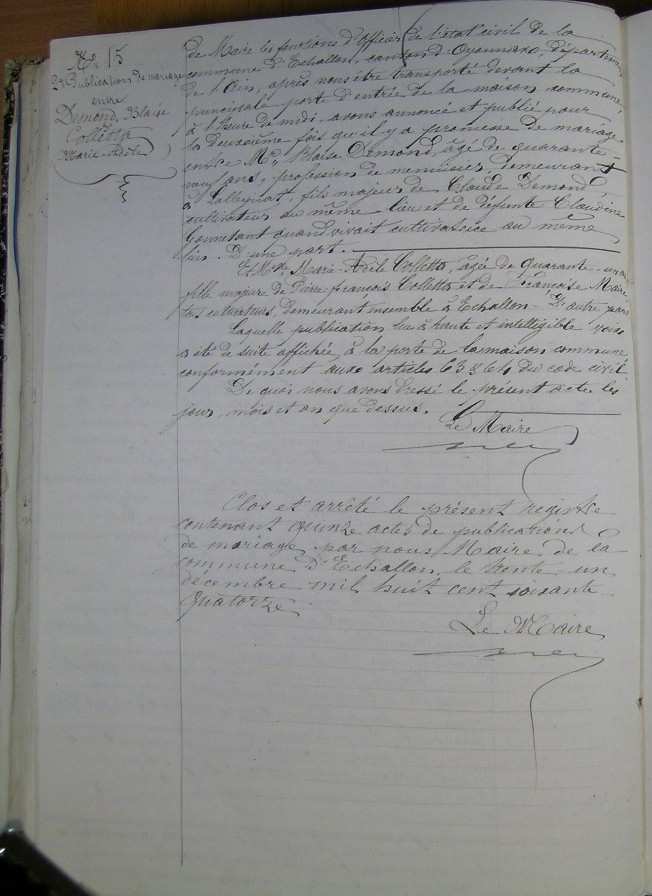 N° 15
2e Publication de mariage
entre
Demond, Blaise
Colletta
Marie-Adèle
de Maire les fonctions d'officier de l'état civil de la
commune d'Echallon, canton d'Oyonnax, département
de l'Ain, après nous être transporté devant la
principale porte d'entrée de la maison commune,
à l'heure de midi, avons annoncé et publié pour
la deuxième fois qu'il y a promesse de mariage
entre Mr Blaise Demond, âgé de quarante-
ans, profession de menuisier, demeurant
à Lalleyriat, fils majeur de Claude Demond
cultivateur au même lieu et de défunte Claudine
quand vivait cultivatrice au même
lieu. D'une part.
Et Mlle Marie-Adèle Colletta, âgée de quarante-un ans
fille majeure de Pierre-François Colletta et de Françoise Maire
tous cultivateurs, demeurant ensemble à Echallon - D'autre part
Laquelle publication lue à haute et intelligible voix
a été de suite affichée à la porte de la maison commune
conformément aux articles 63 & 64 du code civil
De quoi nous avons dressé le présent acte les
jour, mois et an que dessus.
Le Maire
Clos et arrêté le présent registre
contenant quinze actes de publications
de mariage par nous Maire de la
commune d'Echallon, le trente un
décembre mil huit cent soixante
quatorze
Le Maire